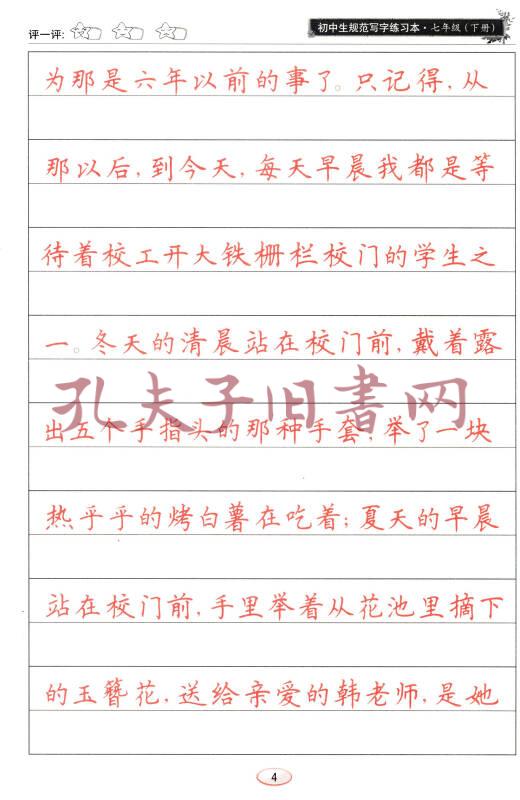 评一评:
初中生规范写字练习本·七年级(下册)
为那是六年以前的事了。只记得,从
那以后,到今天,每天早晨我都是等
待着校工开大铁栅栏校门的学生之
一。冬天的清晨站在校门前,戴着露
孔夫子旧书网
出五个手指头的那种手套,举了一块
热乎乎的烤白薯在吃着;夏天的早晨
站在校门前,手里举着从花池里摘下
的玉簪花,送给亲爱的韩老师,是她
4